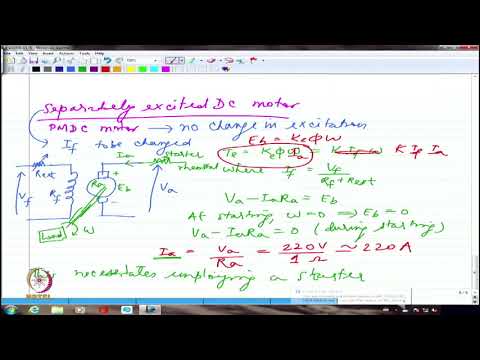 Separately excited DC motor
PMDC motor → no change in excitation
If to be changed
Eb = Keφω
Te = Ketφ Ia = K If ω K If Ia
where If = Vf / Rf + Rext
Ia starter
rheostat
Rext
Vf
Rf
Ra
Eb
Va
Load
ω
Va - IaRa = Eb
At starting, ω=0 ⇒ Eb = 0
Va - IaRa = 0 (during starting)
Ia = Va / Ra = 220V / 1 Ω ≃ 220 A
necessitates employing a starter
NPTEL